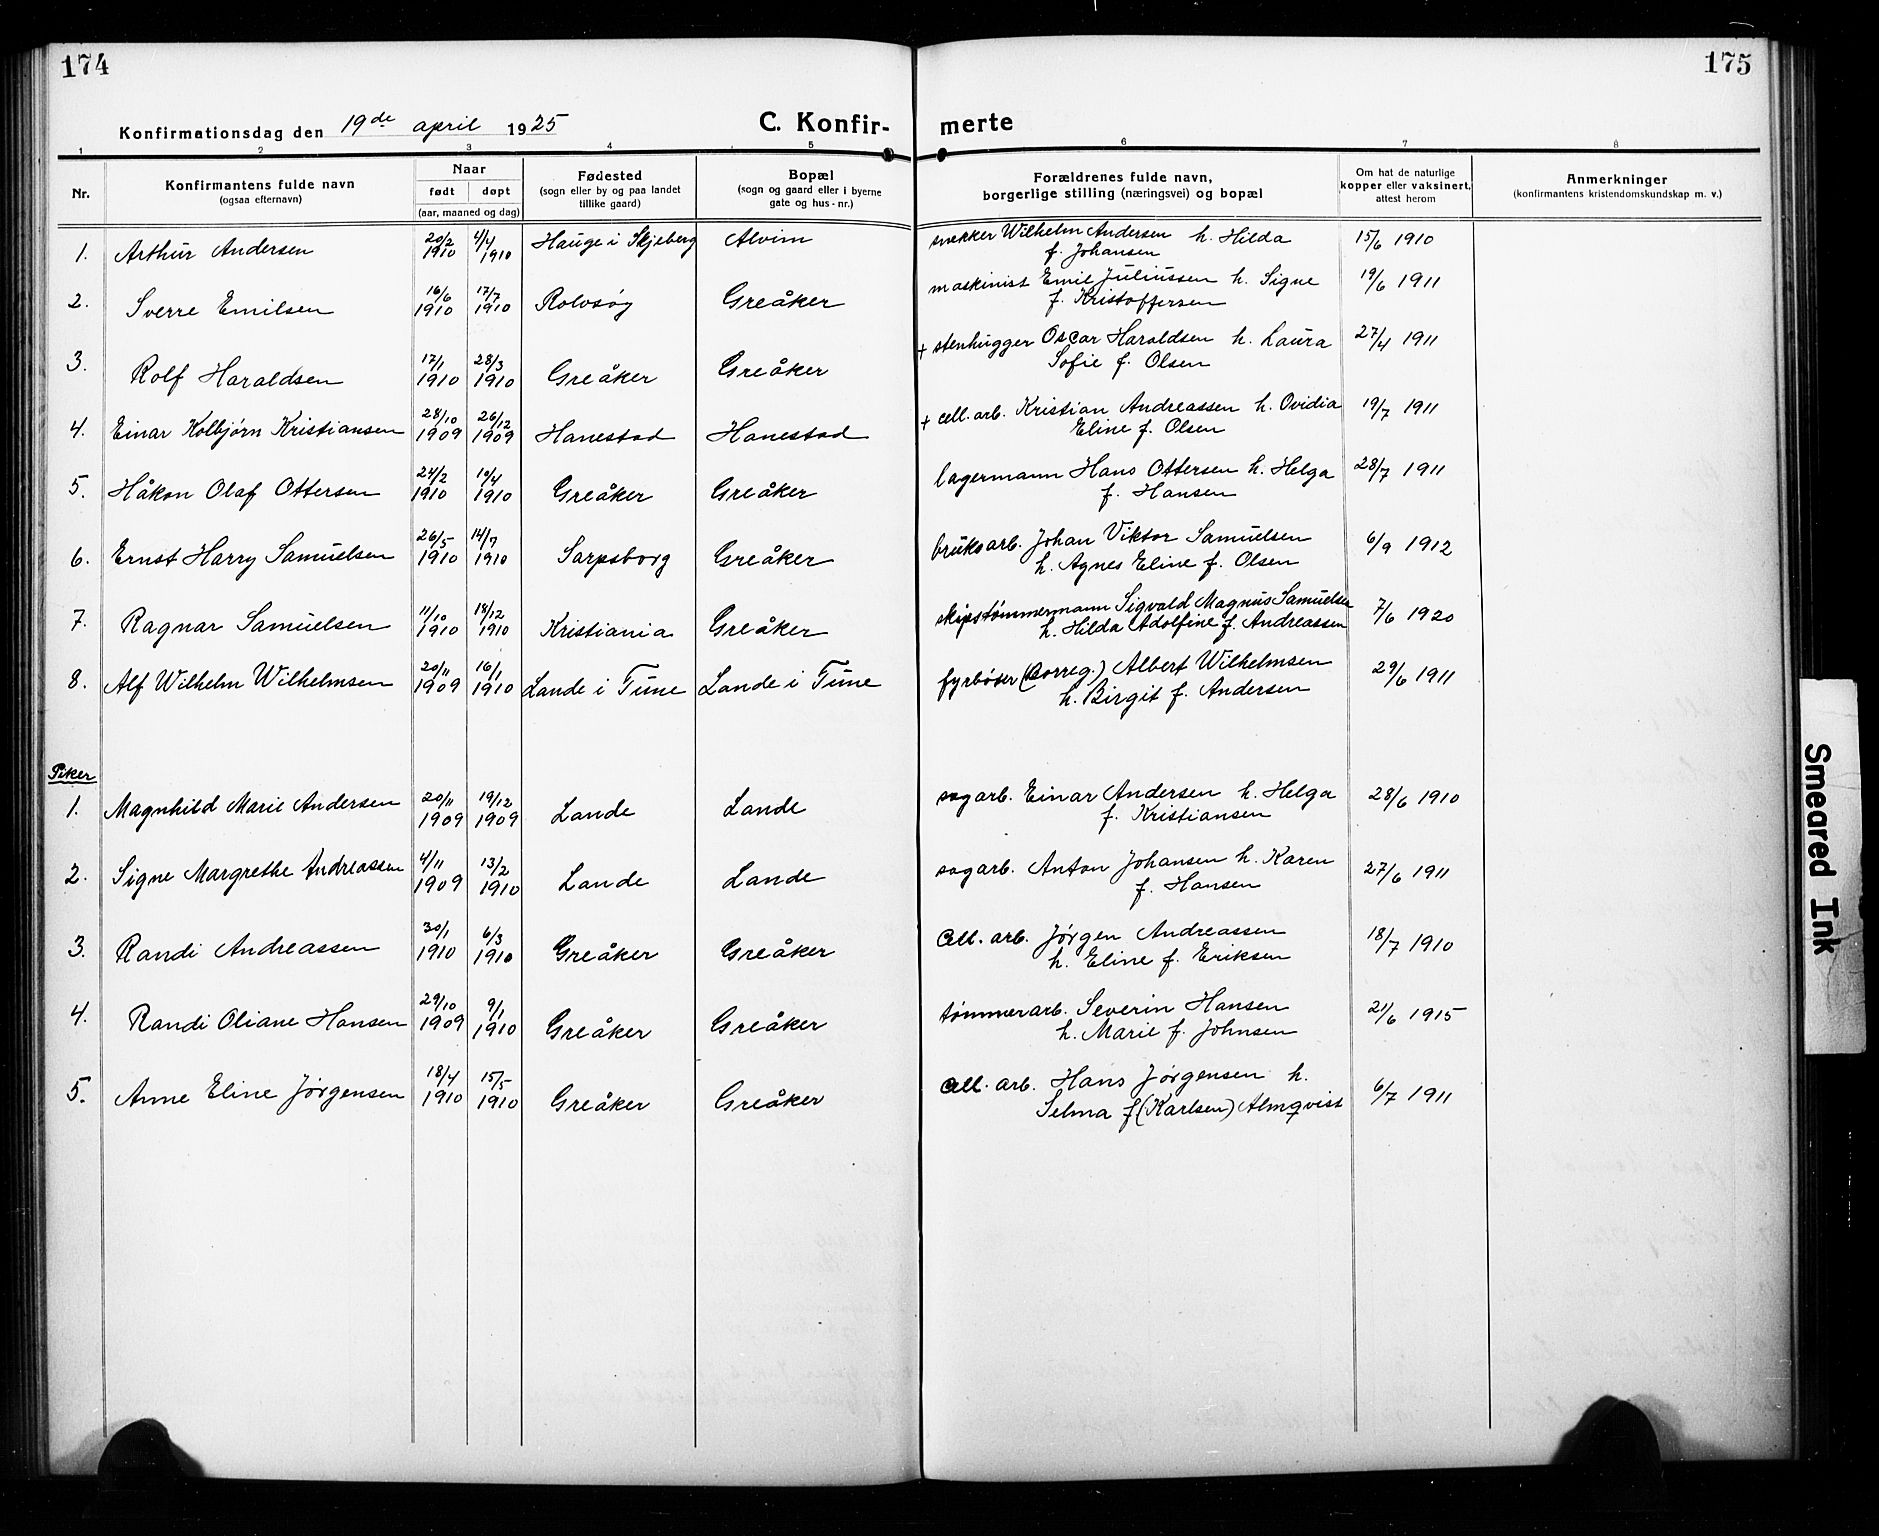 174
175
Konfirmationsdag den 19de april 1925
C. Konfir-
merte
1 2 3 4 5 6 7 8
Nr.
Konfirmantens fulde navn
(ogsaa efternavn)
Naar
født døpt
(aar, maaned og dag)
Fødested
(sogn eller by og paa landet
tillike gaard)
Bopæl
(sogn og gaard eller i byerne
gate og hus-nr.)
Forældrenes fulde navn,
borgerlige stilling (næringsvei) og bopæl
Om hat de naturlige
kopper eller vaksinert,
attest herom
Anmerkninger
(konfirmantens kristendomskundskap m. v.)
1. Arthur Andersen 20/2 1910 4/4 1910 Hauge i Skjeberg Alvim snekker Wilhelm Andersen h. Hilda 15/6 1910
f. Johansen
2. Sverre Emilsen 16/6 1910 17/7 1910 Rolvsøy Greåker maskinist Emil Juliussen h. Signe 19/6 1911
f. Kristoffersen
3. Rolf Haraldsen 17/1 1910 28/3 1910 Greåker Greåker + stenhugger Oscar Haraldsen h. Laura 27/4 1911
Sofie f. Olsen
4. Einar Kolbjørn Kristiansen 28/10 1909 26/12 1909 Hanestad Hanestad + cell. arb. Kristian Andreassen h. Ovidia 19/7 1911
Eline f. Olsen
5. Håkon Olaf Ottersen 24/2 1910 10/4 1910 Greåker Greåker lagermann Hans Ottersen h. Helga 28/7 1911
f. Hansen
6. Ernst Harry Samuelsen 26/5 1910 14/7 1910 Sarpsborg Greåker bruksarb. Johan Viktor Samuelsen 6/9 1912
h. Agnes Eline f. Olsen
7. Ragnar Samuelsen 11/10 1910 18/12 1910 Kristiania Greåker skipstømmermann Sigvald Magnus Samuelsen 7/6 1920
h. Hilda Adolfine f. Andreassen
8. Alf Wilhelm Wilhelmsen 20/11 1909 16/1 1910 Lande i Tune Lande i Tune fyrbøter (Borreg.) Albert Wilhelmsen 29/6 1911
h. Birgit f. Andersen
Piker
1. Magnhild Marie Andersen 20/11 1909 19/12 1909 Lande Lande sagarb. Einar Andersen h. Helga 28/6 1910
f. Kristiansen
2. Signe Margrethe Andreassen 4/11 1909 13/2 1910 Lande Lande sagarb. Anton Johansen h. Karen 27/6 1911
f. Hansen
3. Randi Andreassen 30/1 1910 6/3 1910 Greåker Greåker Cell. arb. Jørgen Andreassen 18/7 1910
h. Eline f. Eriksen
4. Randi Oliane Hansen 29/10 1909 9/1 1910 Greåker Greåker tømmerarb. Severin Hansen 21/6 1915
h. Marie f. Johnsen
5. Anne Eline Jørgensen 18/4 1910 15/5 1910 Greåker Greåker Cell. arb. Hans Jørgensen h. 6/7 1911
Selma f (Karlsen) Almqvist
Smeared Ink